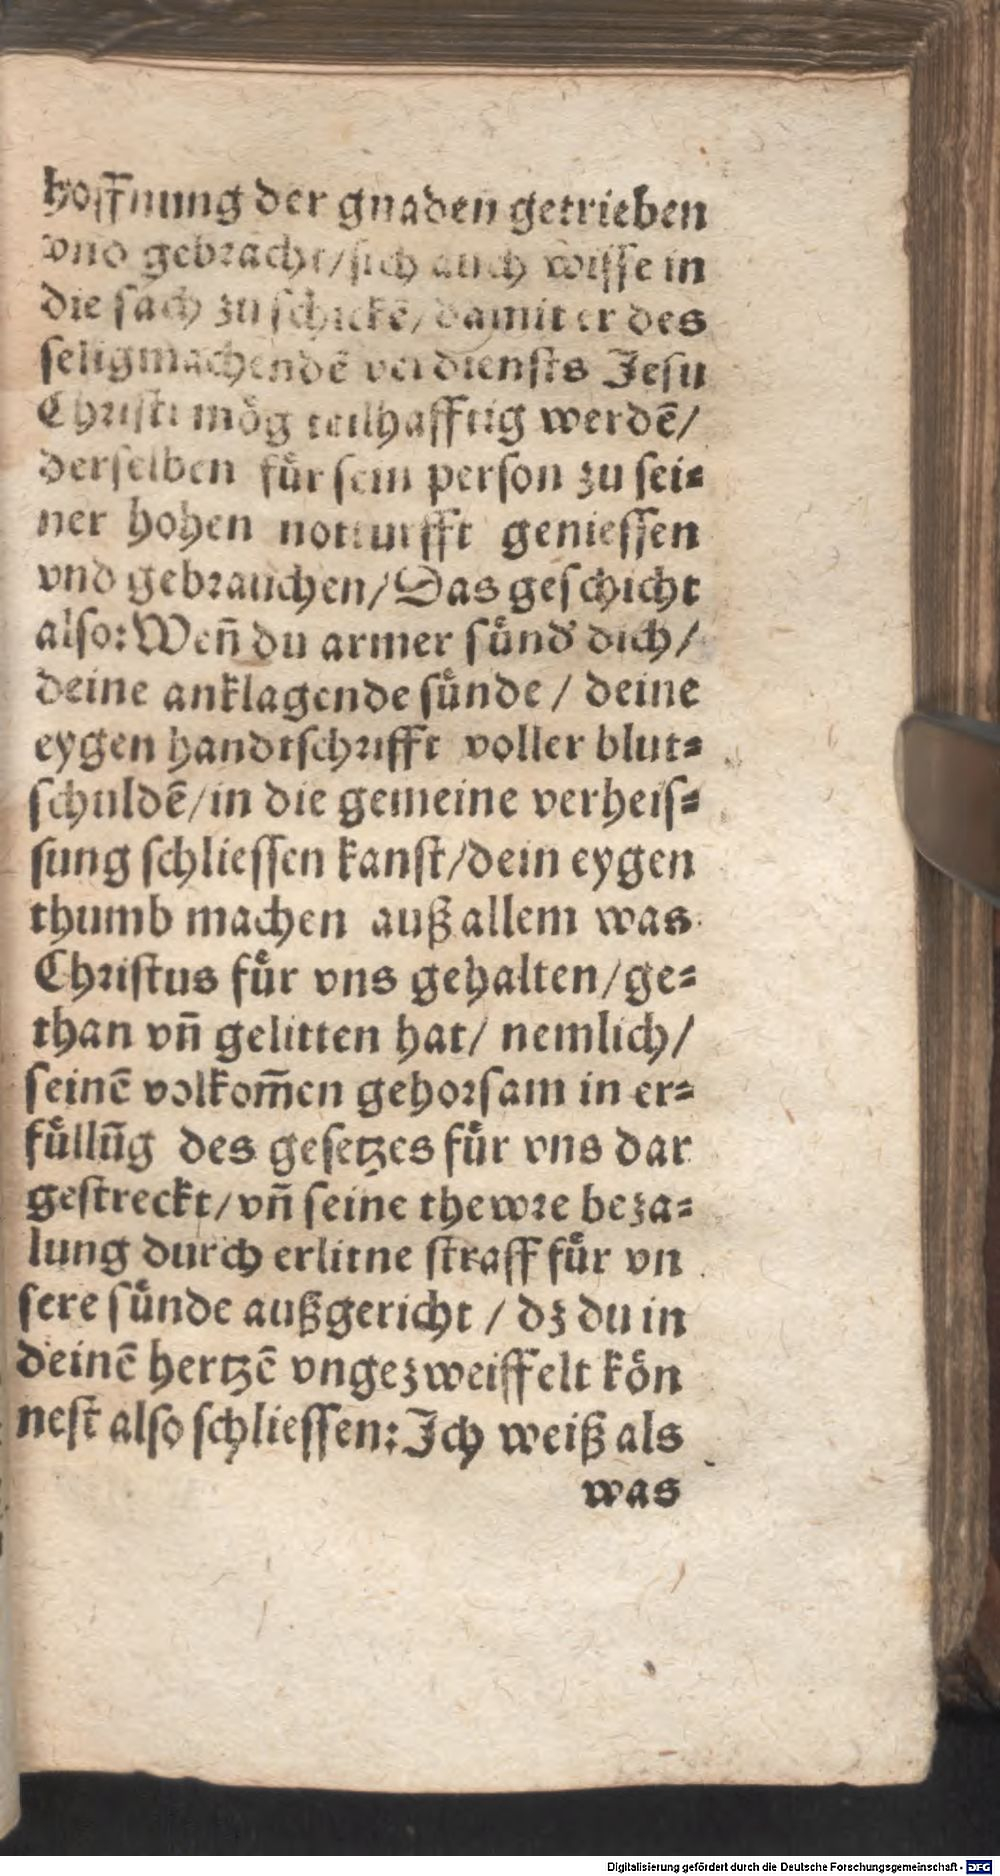 hoffnung der gnaden getrieben
vnd gebracht/sich auch wisse in
die sach zu schickẽ/damit er des
seligmachendẽ verdiensts Jesu
Christi moͤg teilhafftig werdẽ/
derselben fuͤr sein person zu sei⸗
ner hohen notturfft geniessen
vnd gebrauchen/Das geschicht
also: Wen̄ du armer suͤnd' dich/
deine anklagende suͤnde / deine
eygen handtschrifft voller blut⸗
schuldẽ/in die gemeine verheis⸗
sung schliessen kanst/dein eygen
thumb machen auß allem was
Christus fuͤr vns gehalten/ge⸗
than vn̄ gelitten hat/ nemlich/
seinẽ volkom̄en gehorsam in er⸗
fuͤllūg des gesetzes fuͤr vns dar
gestreckt/vn̄ seine thewre beza⸗
lung durch erlitne straff fuͤr vn
sere suͤnde außgericht / dz du in
deinẽ hertzẽ vngezweiffelt koͤn
nest also schliessen: Ich weiß als
was
Digitalisierung gefördert durch die Deutsche Forschungsgemeinschaft - DFG